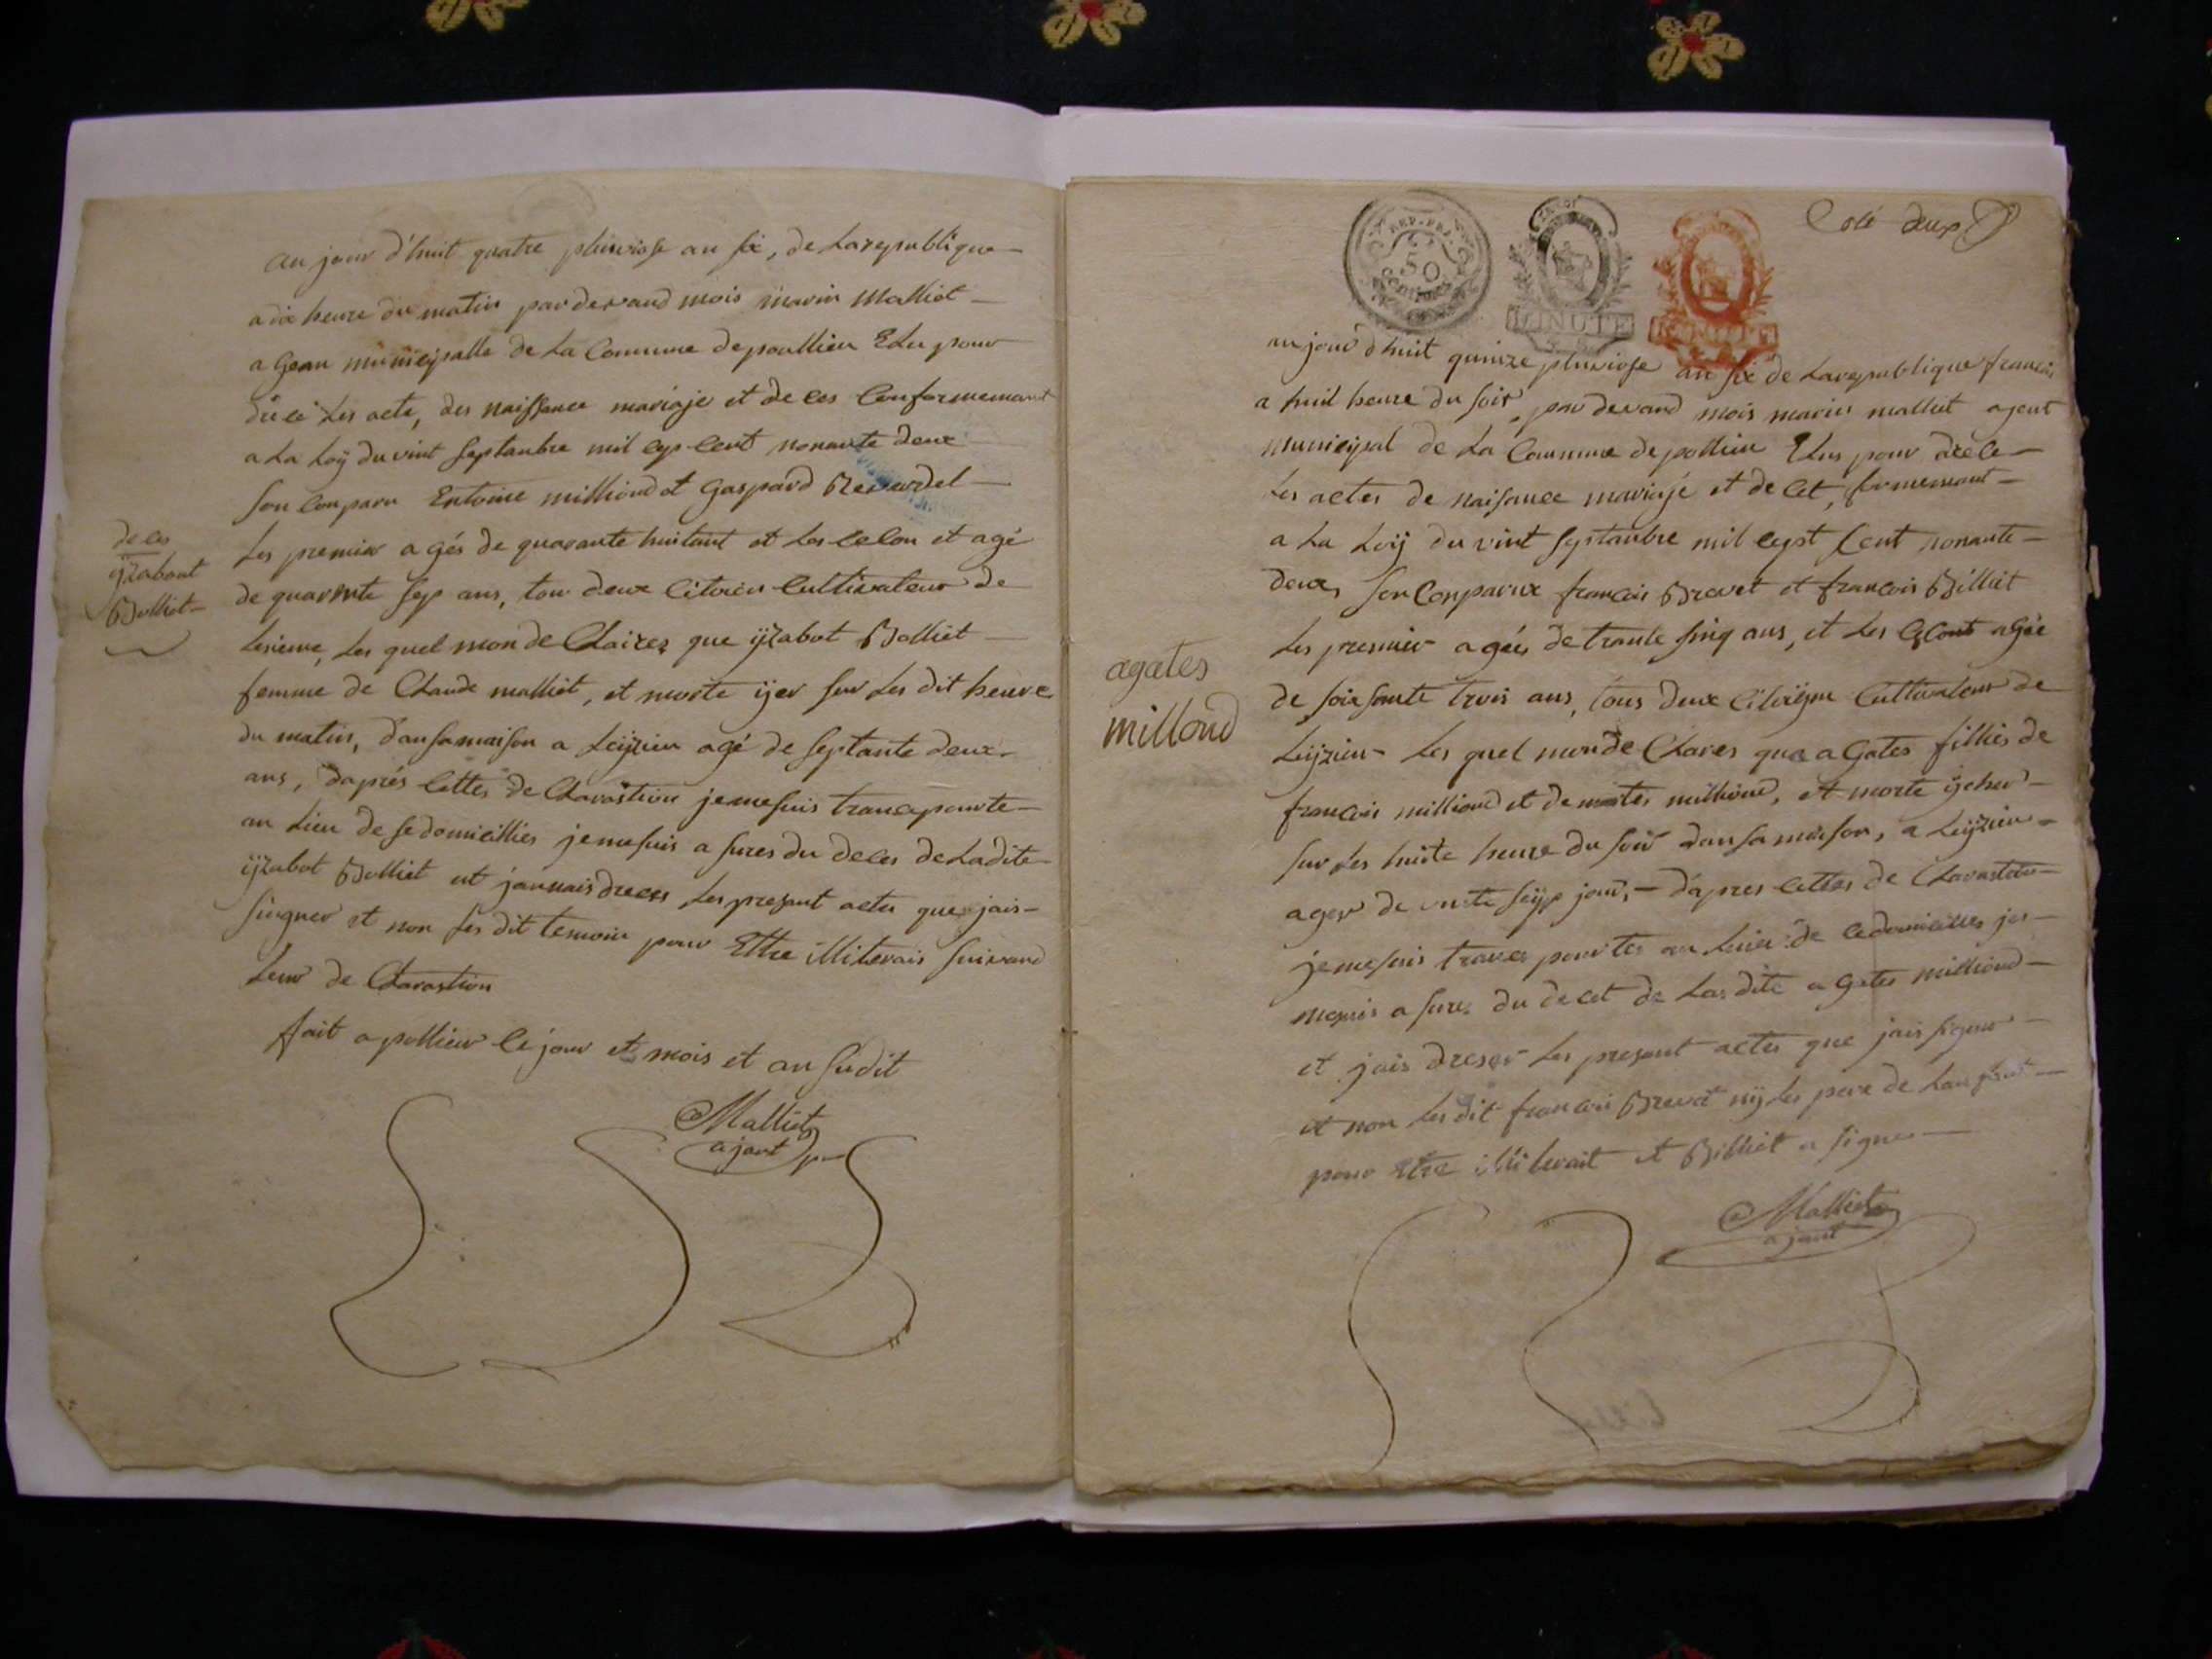 au jour d'huit quatre pluviose an six, de la republique
a dix heure du matin par devand mois marin Malliet
a Gean municipalle de la Commune de poullieu Elu pour
les acte, des naissance mariaje et de ces Conformemant
a la Loÿ du vint Septanbre mil cep cent nonante deux
son Conparu Entoine milliond et Gaspard Reverdel
Les premier a gés de quarante huitant et Les celon et agé
de quarente sep ans, tou deux Citoien Cultivateur de
Les quel mon de Claires que ÿzabot Bolliet
femme de Claude malliet, et morte ÿer sur Les dit heure
du matin, dan sa maison a Leÿzieu agé de septante deux
ans, d'aprés cettes de Clarastion je me suis trancepourte
au Lieu de se domicillies je me suis a sures du deces de La dite
ÿzabot Bolliet et dreces Les presant actes que jais
singner et non Les dit temoin pour Ettre illiterais suivand
Leur de Clarastion
fait a pollieu le jour et mois et an sudit
Malliet
ajant
de ces
ÿzabont
Bolliet
REP. FRA.
50
centimes
MINUTE
Coté deux
au jour d'huit quinze pluviose an six de La republique francois
a huit heure du soir, par devand mois marin malliet agent
municipal de La Commune de pollieu Elus pour
Les actes de naisance mariaje et de cet, formemant
a La Loÿ du vint septanbre mil cept Cent nonante
deux, son Conparux francois Brevet et francois Billiet
Les premier a gées de trante sinq ans, et Les agée
de soixsante trois ans, tous deux Cultivateur de
Leÿzieu Les quel mon de Clares que a Gates fillies de
francois milliond et de milliond, et morte
sur Les huite heure du soir dan sa maison, a Leÿzieu
ager de jour, d'apres cettes de Clarastion
je me suis pourtes au Luieu de domicilles je
suis a sures du decet de Las dite a Gates milliond
et jais dreser Les presant actes que jais signer
et non Les dit francois Brevet nÿ Les pere de
pour Etre et Billiet a signer
Malliet
ajant
agates
milloud